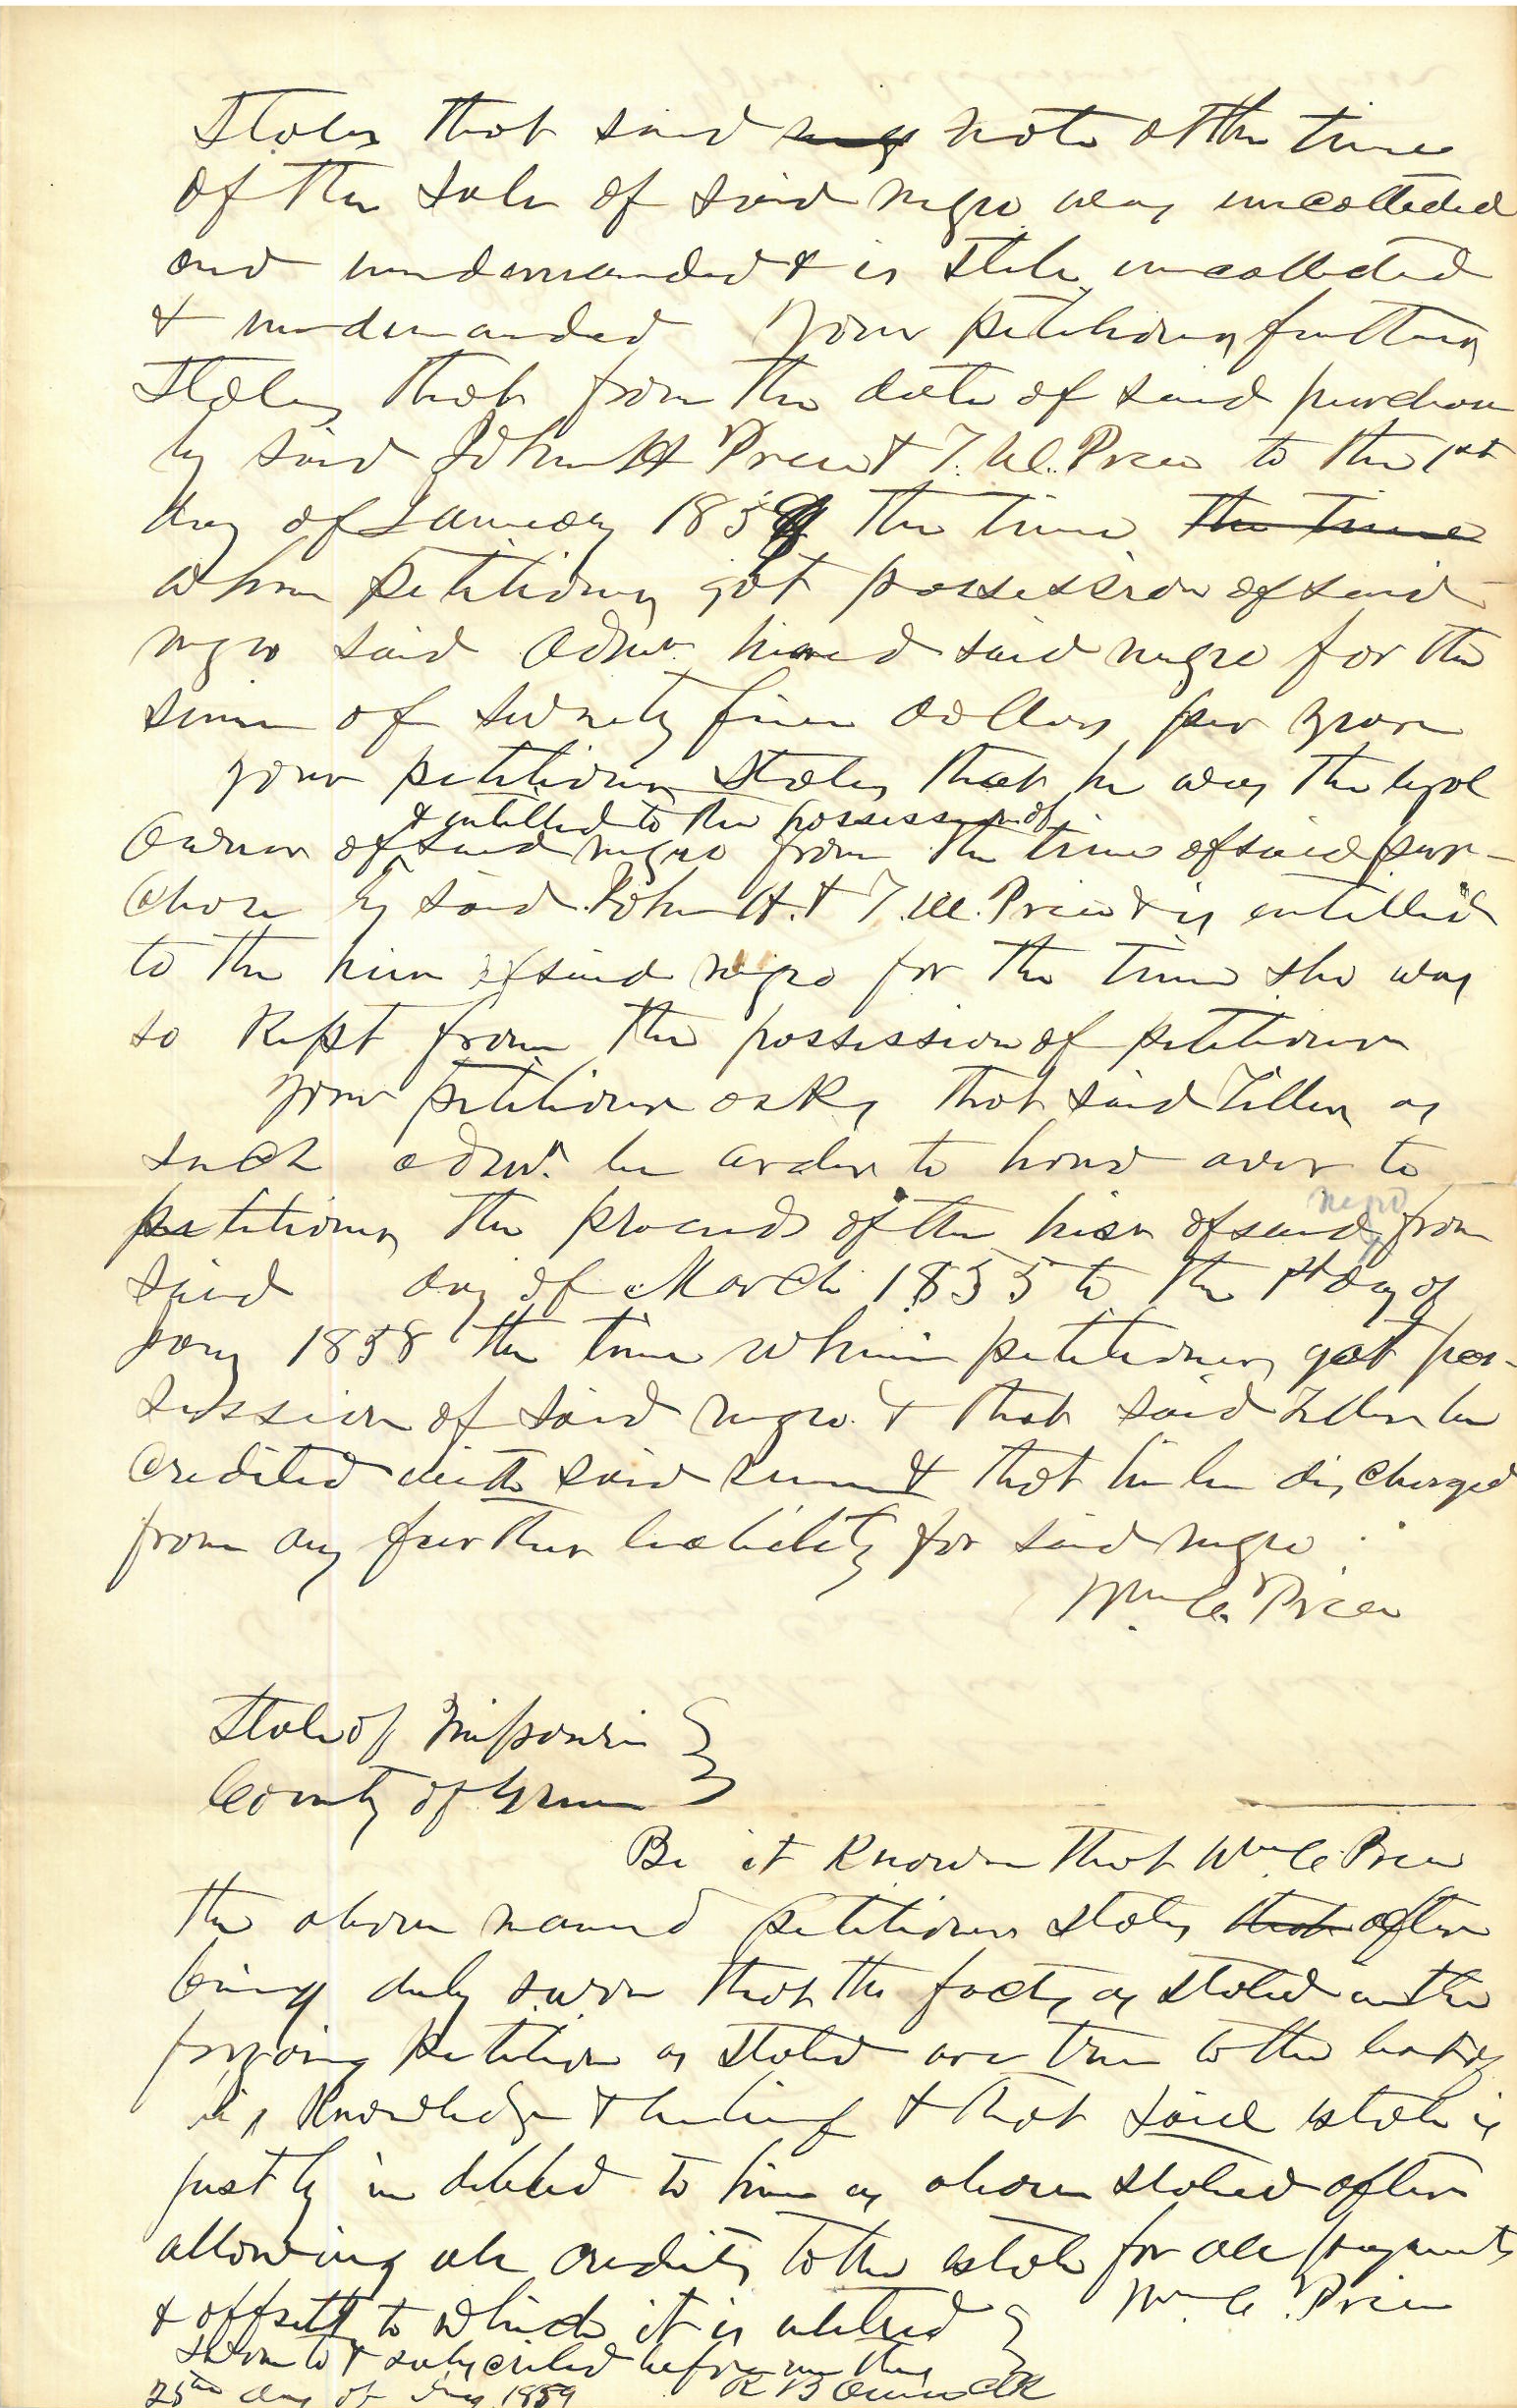 States that said note at the time
of the sale of said negro was uncollected
and undemanded & is still uncollected
& undemanded Your petitioner further
States that from the date of said purchase
by said John H Price & T. W. Price to the 1st
day of January 185 the time the time
when petitioner got possession of said
negro said Admr. hired said negro for the
sum of seventy five dollars per year
your petitioner States that he was the legal
& entitled to the possession of
Owner of said negro from the time of said pur-
chase by said John H. & T. W. Price & is entitled
to the hire of said negro for the time she was
so kept from the possession of petitioner
your petitioner asks that said Tiller as
such admr. be order to hand over to
petitioner the proceeds of the hire of said negro from
said day of March 1855 to the 1st day of
Jany 1858 the time when petitioner got pos-
session of said negro & that said Tiller be
credited with said sum & that he be discharged
from any further liability for said negro.
Wm C. Price
State of Missouri
County of Greene
Be it Known that Wm C. Price
the above named petitioner states that after
being duly sworn that the facts as stated in the
forgoing petition as stated are true to the best of
his Knowledge & belief & that said estate is
justly in debted to him as above stated after
allowing all credits to the estate for all payments
& offsetts to which it is entitled
Wm C. Price
Sworn to & subscribed before me this
25th day of 1859